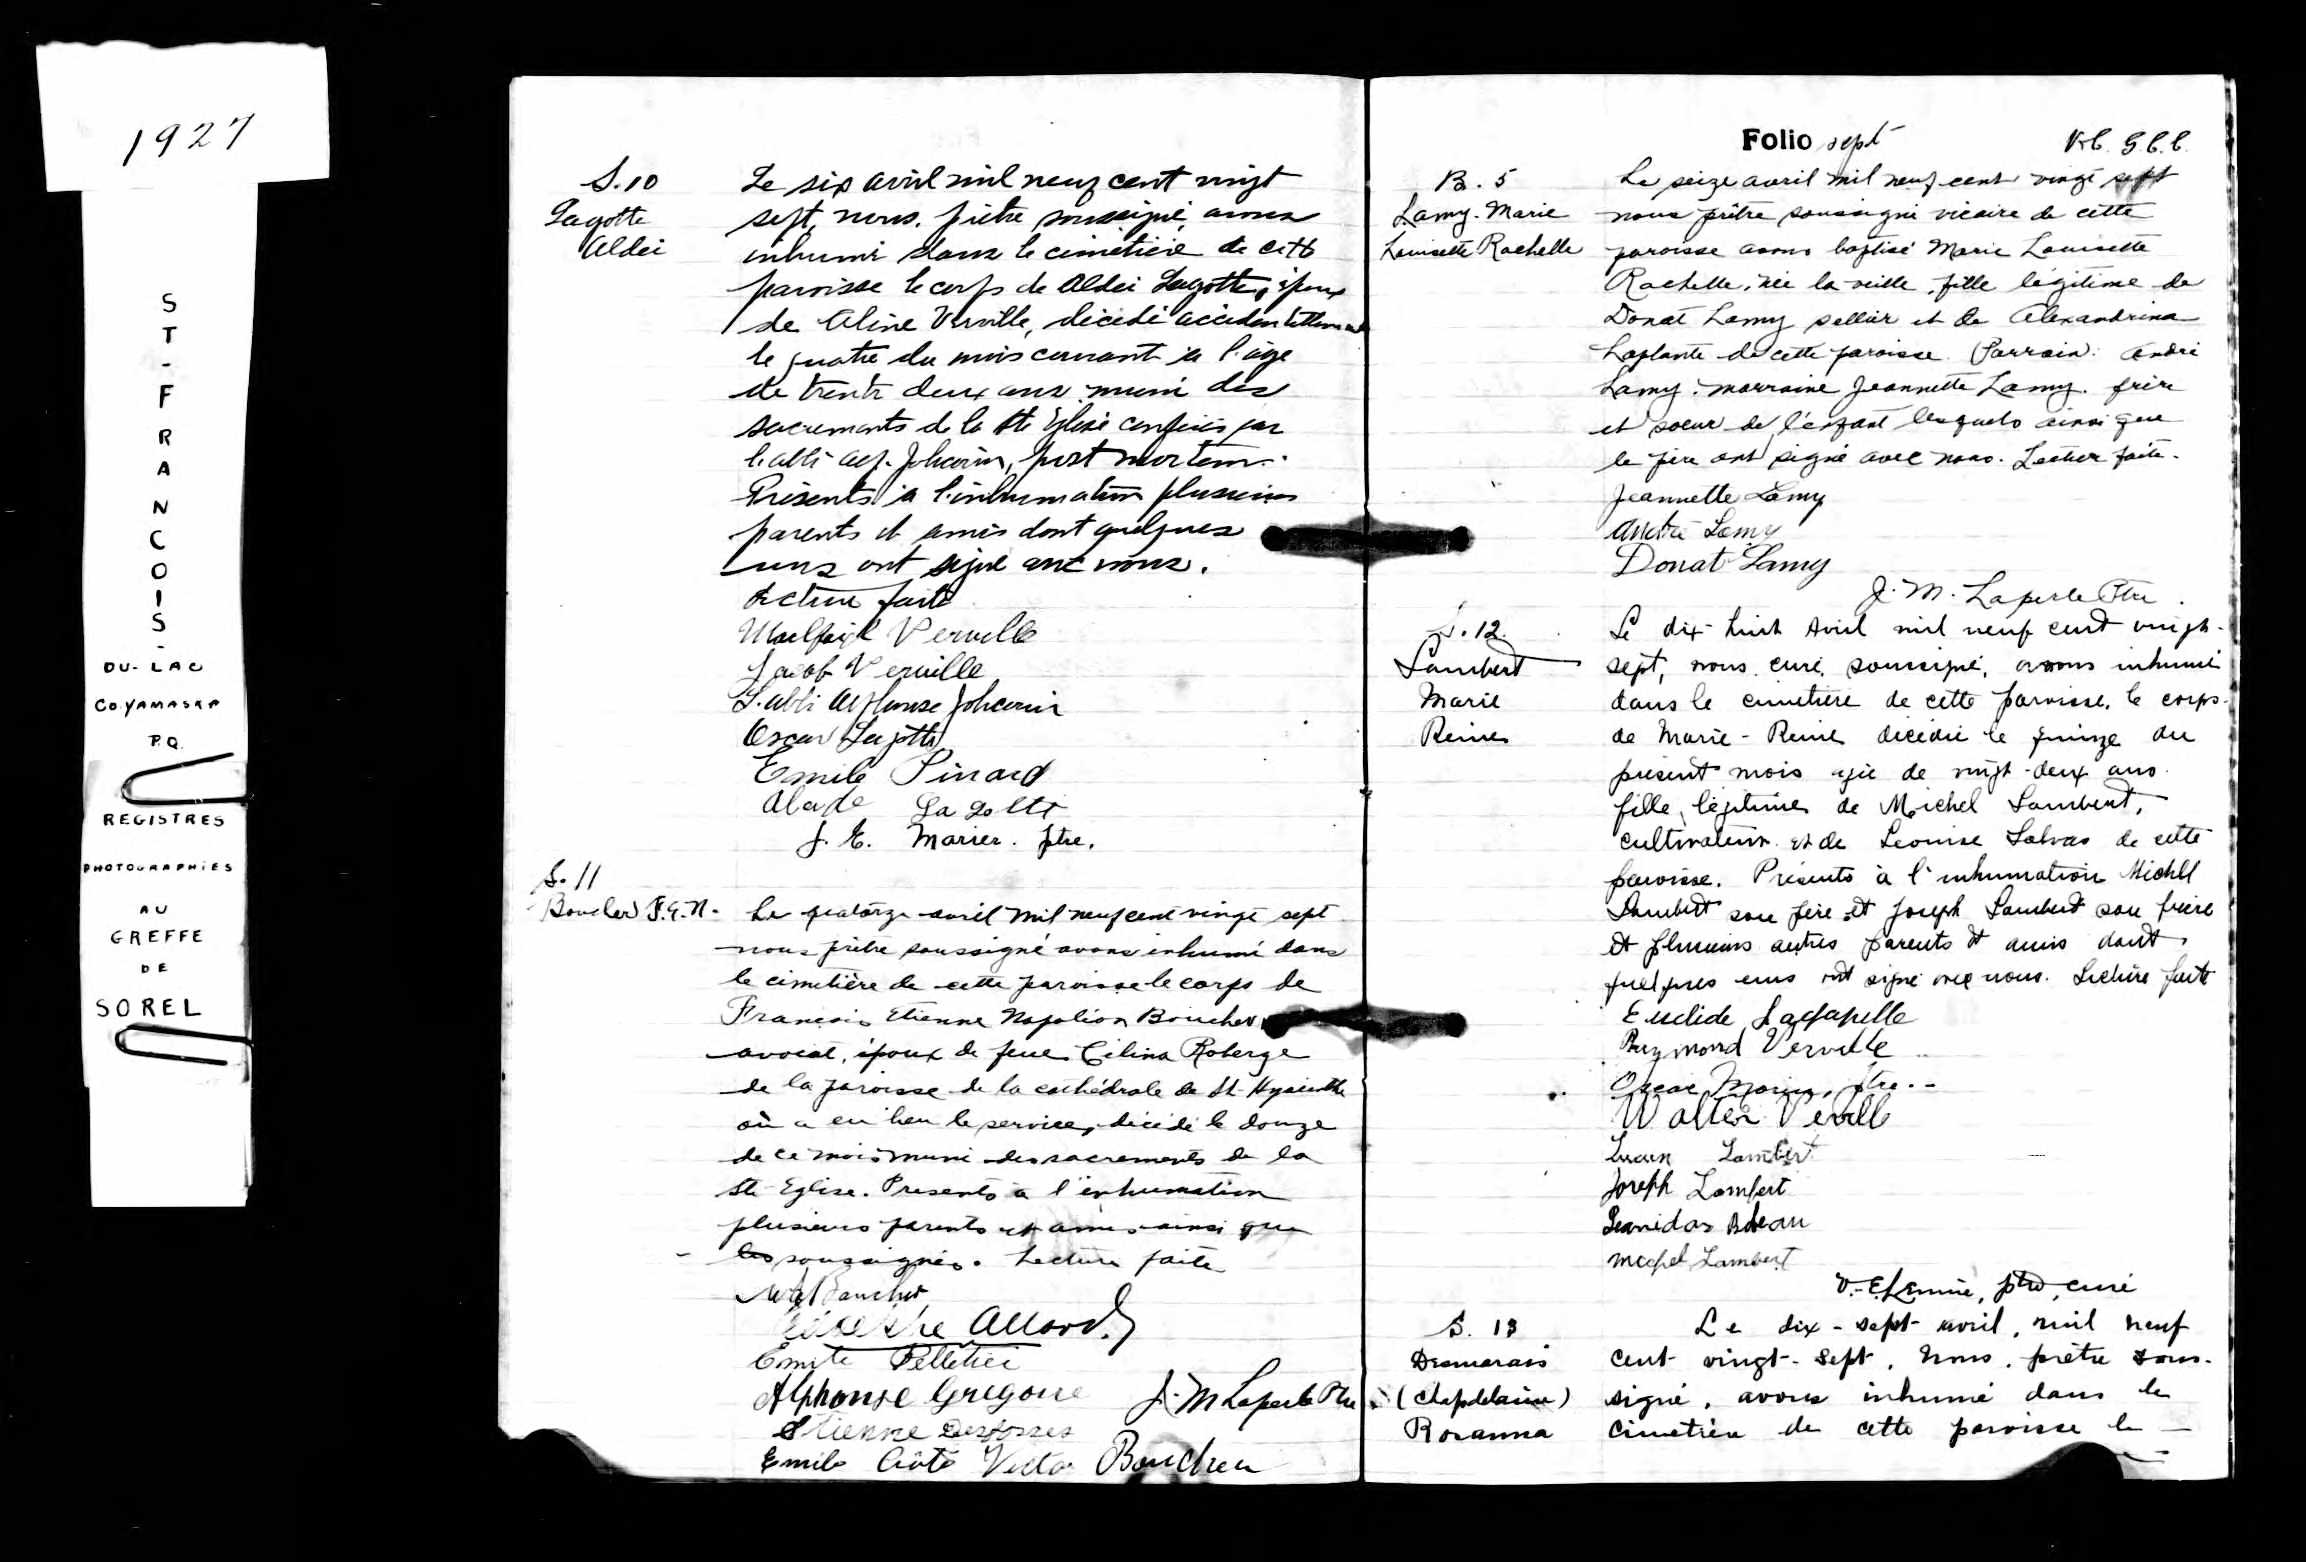 1927
ST-FRANCOIS-
DU-LAC
CO. YAMASKA
P.Q.
REGISTRES
PHOTOGRAPHIÉS
AU
GREFFE
DE
SOREL
S.10
Lagotte
Aldei
Le six avril mil neuf cent vingt
sept, nous, prêtre soussigné, avons
inhumé dans le cimetière de cette
paroisse le corps de Aldei Lagotte, époux
de Aline Verville, décédé accidentellement
le quatre du mois courant à l'âge
de trente deux ans muni des
sacrements de la Ste Eglise conférés par
l'abbé Alp. Joheorin, post mortem.
Présents à l'inhumation plusieurs
parents et amis dont quelques
uns ont signé avec nous.
Lecture faite
Verville
Jacob Verville
L'abbé Alphonse
Oscar Lagotte
Emile Pinard
Lagotte
J. E. Marier. ptre.
S. 11
Boucher F.E.N.
Le quatorze avril mil neuf cent vingt sept
nous prêtre soussigné avons inhumé dans
le cimetière de cette paroisse le corps de
François Etienne Napoléon Boucher,
avocat, époux de feue Célina Roberge
de la paroisse de la cathédrale de St-Hyacinthe
où a eu lieu le service, décédé le douze
de ce mois muni des sacrements de la
Ste Eglise. Présents à l'inhumation
plusieurs parents et amis ainsi que
les soussignés. Lecture faite
Boucher
Allard
Emile Pelletier
Alphonse Gregoire J. M Laperle Ptre
Etienne Desfossés
Emile Côté Victor Boucher
Folio sept
B. 5
Lamy. Marie
Louisette Rachelle
Le seize avril mil neuf cent vingt sept
nous prêtre soussigné vicaire de cette
paroisse avons baptisé Marie Louisette
Rachelle, née la veille, fille légitime de
Donat Lamy sellier et de Alexandrina
Laplante de cette paroisse. Parrain: André
Lamy. marraine Jeannette Lamy. frère
et soeur de l'enfant lesquels ainsi que
le père ont signé avec nous. Lecture faite.
Jeannette Lamy
André Lamy
Donat Lamy
J. M. Laperle Ptre.
S. 12.
Lambert
Marie
Reine
Le dix-huit Avril mil neuf cent vingt-
sept, nous, curé, soussigné, avons inhumé
dans le cimetière de cette paroisse, le corps
de Marie-Reine décédée le quinze du
présent mois agée de vingt-deux ans
fille légitime de Michel Lambert,
cultivateur et de Léonise Salvas de cette
paroisse. Présents à l'inhumation Michel
Lambert son père et Joseph Lambert son frère
et plusieurs autres parents et amis dont
quelques uns ont signé avec nous. Lecture faite
Euclide Lachapelle
Raymond Verville
Oscar ptre.
Walter Verville
Lucien Lambert
Joseph Lambert
Léonidas
Michel Lambert
ptre, curé
S. 13
Desmarais
(Chapdelaine)
Rosanna
Le dix-sept avril, mil neuf
cent vingt-sept, nous, prêtre sous-
signé, avons inhumé dans le
cimetière de cette paroisse le